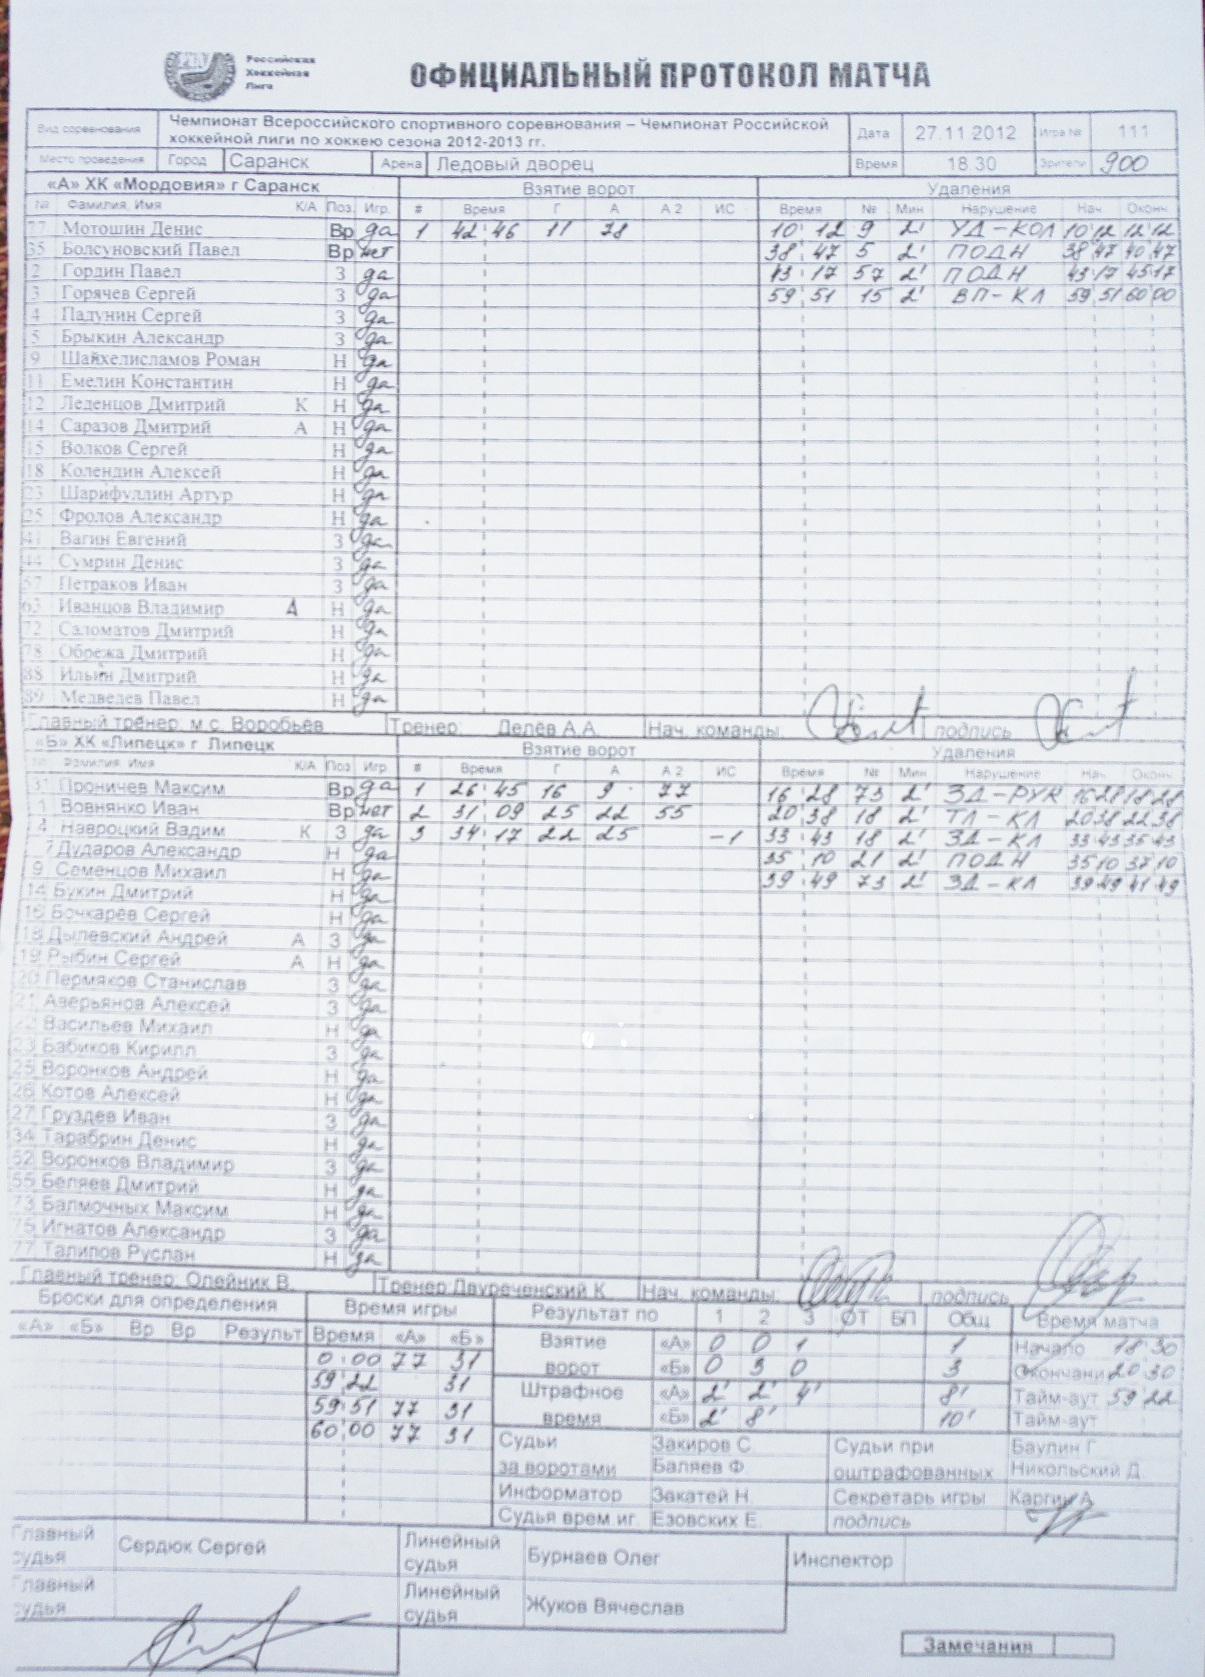 Российская
Хоккейная
Лига
ОФИЦИАЛЬНЫЙ ПРОТОКОЛ МАТЧА
Вид соревнования Чемпионат Всероссийского спортивного соревнования – Чемпионат Российской хоккейной лиги по хоккею сезона 2012-2013 гг. Дата 27.11.2012 Игра № 111
Место проведения Город Саранск Арена Ледовый дворец Время 18.30 Зрители 900
«А» ХК «Мордовия» г Саранск Взятие ворот Удаления
№ Фамилия, Имя К/А Поз. Игр. # Время Г А А 2 ИС Время № Мин Нарушение Нач. Оконч.
77 Мотошин Денис Вр да 1 42 46 11 78 10 12 9 2' УД-КОЛ 10 12 12 12
35 Болсуновский Павел Вр нет 38 47 5 2' ПОДН 38 47 40 47
2 Гордин Павел З да 43 17 57 2' ПОДН 43 17 45 17
3 Горячев Сергей З да 59 51 15 2' ВП-КЛ 59 51 60 00
4 Падунин Сергей З да
5 Брыкин Александр З да
9 Шайхелисламов Роман Н да
11 Емелин Константин Н да
12 Леденцов Дмитрий К Н да
14 Саразов Дмитрий А Н да
15 Волков Сергей Н да
18 Колендин Алексей Н да
23 Шарифуллин Артур Н да
25 Фролов Александр Н да
41 Вагин Евгений З да
44 Сумрин Денис З да
57 Петраков Иван З да
63 Иванцов Владимир А Н да
72 Саломатов Дмитрий Н да
78 Обрежа Дмитрий Н да
88 Ильин Дмитрий Н да
89 Медведев Павел Н да
Главный тренер: м.с. Воробьёв Тренер: Делёв А.А. Нач. команды подпись
«Б» ХК «Липецк» г. Липецк Взятие ворот Удаления
№ Фамилия, Имя К/А Поз Игр. # Время Г А А 2 ИС Время № Мин Нарушение Нач. Оконч.
31 Проничев Максим Вр да 1 26 45 16 9 77 16 28 73 2' ЗД-РУК 16 28 18 28
1 Вовнянко Иван Вр нет 2 31 09 25 22 55 20 38 18 2' ТЛ-КЛ 20 38 22 38
4 Навроцкий Вадим К З да 3 34 17 22 25 -1 33 43 18 2' ЗД-КЛ 33 43 35 43
7 Дударов Александр Н да 35 10 21 2' ПОДН 35 10 37 10
9 Семенцов Михаил Н да 39 49 73 2' ЗД-КЛ 39 49 41 49
14 Букин Дмитрий Н да
16 Бочкарёв Сергей Н да
18 Дылевский Андрей А З да
19 Рыбин Сергей А Н да
20 Пермяков Станислав З да
21 Аверьянов Алексей З да
22 Васильев Михаил Н да
23 Бабиков Кирилл З да
25 Воронков Андрей Н да
26 Котов Алексей Н да
27 Груздев Иван З да
34 Тарабрин Денис Н да
52 Воронков Владимир З да
55 Беляев Дмитрий Н да
73 Балмочных Максим Н да
75 Игнатов Александр З да
77 Талипов Руслан Н да
Главный тренер: Олейник В. Тренер Двуреченский К. Нач. команды: подпись
Броски для определения Время игры Результат по 1 2 3 ОТ БП Общ Время матча
«А» «Б» Вр Вр Результ Время «А» «Б» Взятие ворот «А» 0 0 1 1 Начало 18 30
0 00 77 31 «Б» 0 3 0 3 Окончани 20 30
59 22 31 Штрафное время «А» 2' 2' 4' 8' Тайм-аут 59 22
59 51 77 31 «Б» 2' 8' 10' Тайм-аут
60 00 77 31 Судьи за воротами Закиров С. Баляев Ф. Судьи при оштрафованных Баулин Г. Никольский Д.
Информатор Закатей Н. Секретарь игры Каргин А.
Судья врем.иг. Езовских Е. подпись
Главный судья Сердюк Сергей Линейный судья Бурнаев Олег Инспектор
Главный судья Линейный судья Жуков Вячеслав
Замечания